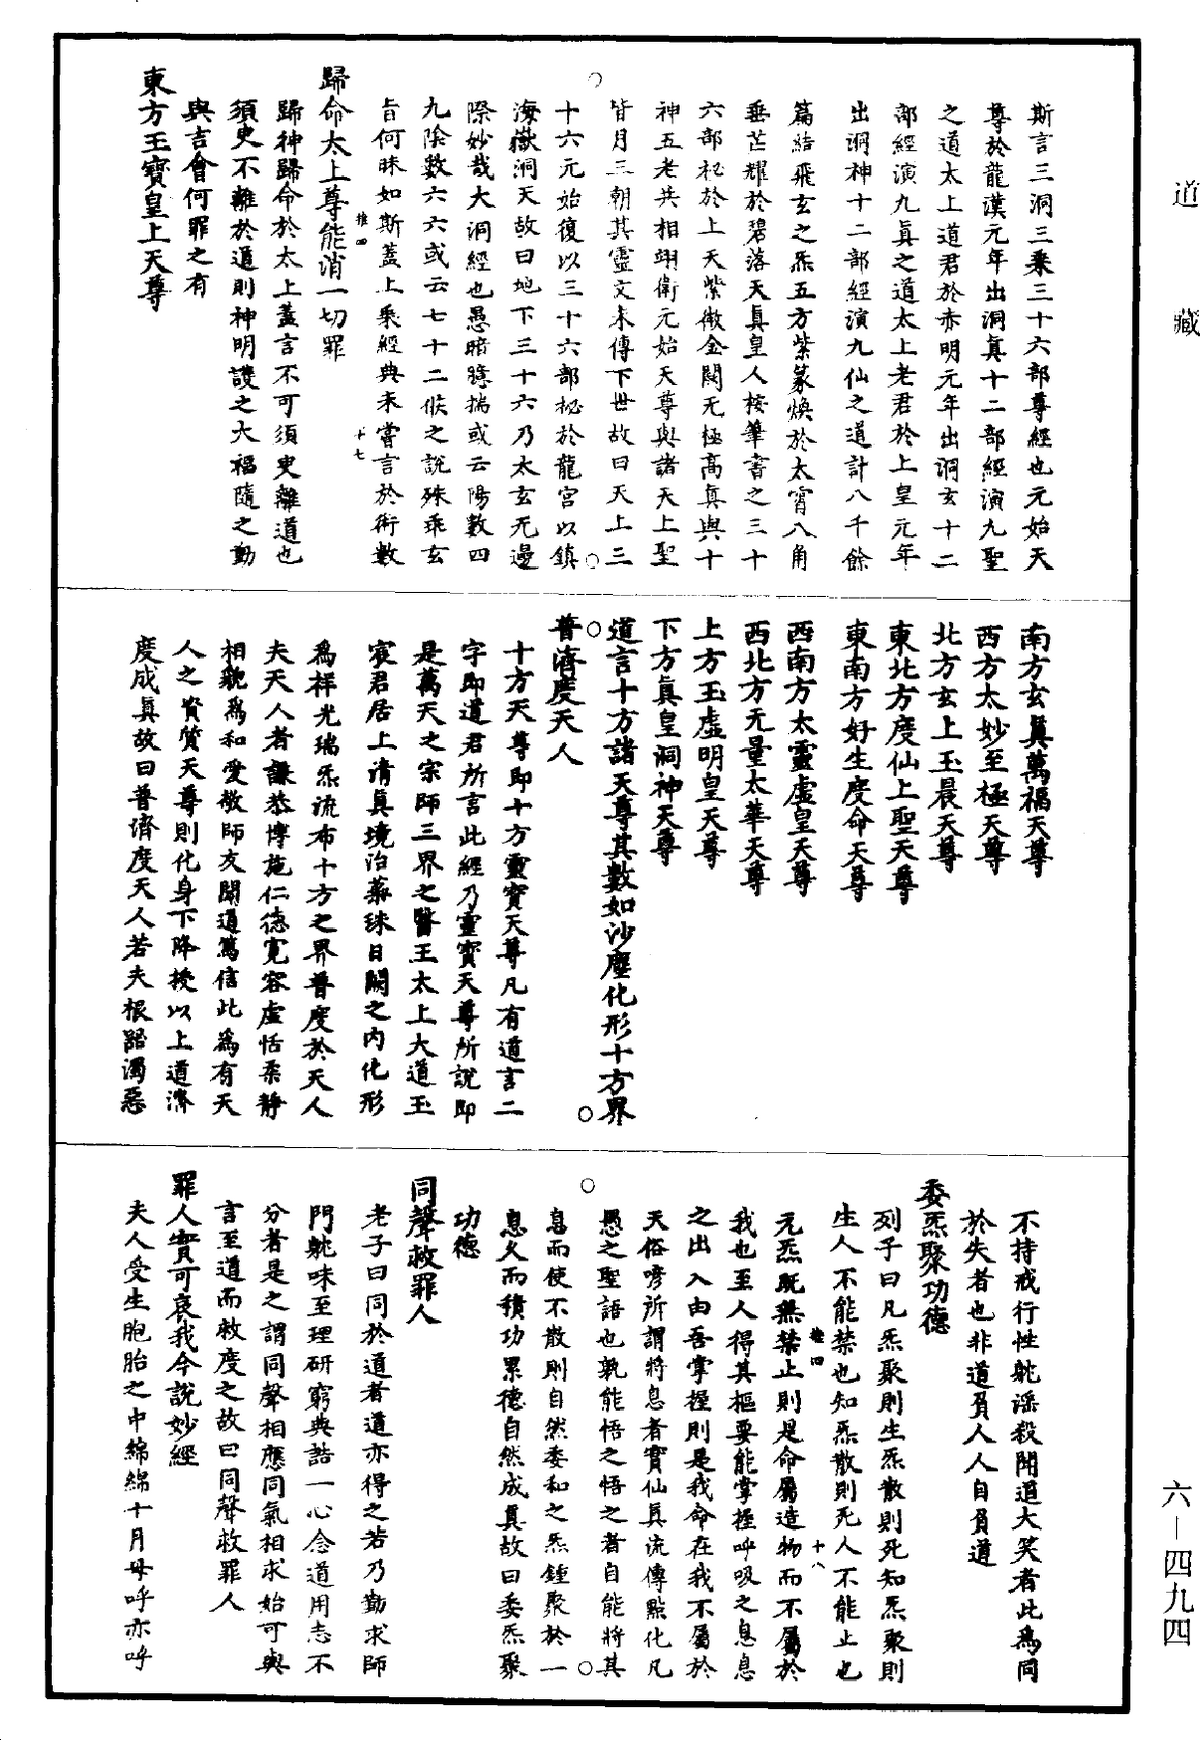 道藏
斯言三洞三乘三十六部尊經也元始天
尊於龍漢元年出洞真十二部經演九聖
之道太上道君於赤明元年出洞玄十二
部經演九真之道太上老君於上皇元年
出洞神十二部經演九仙之道計八千餘
篇結飛玄之炁五方紫篆煥於太霄八角
垂芒耀於碧落天真皇人按筆書之三十
六部祕於上天紫微金闕无極高真與十
神五老共相翊衛元始天尊與諸天上聖
皆月三朝其靈文未傳下世故曰天上三
十六元始復以三十六部祕於龍宮以鎮
海嶽洞天故曰地下三十六乃太玄无邊
際妙哉大洞經也愚暗臆揣或云陽數四
九陰數六六或云七十二候之說殊乖玄
旨何昧如斯蓋上乘經典未嘗言於術數
推四
十七
歸命太上尊能消一切罪
歸神歸命於太上蓋言不可須臾離道也
須臾不離於道則神明護之大福隨之動
與吉會何罪之有
東方玉寶皇上天尊
南方玄真萬福天尊
西方太妙至極天尊
北方玄上玉晨天尊
東北方度仙上聖天尊
東南方好生度命天尊
西南方太靈虛皇天尊
西北方无量太華天尊
上方玉虛明皇天尊
下方真皇洞神天尊
道言十方諸天尊其數如沙塵化形十方界
普濟度天人
十方天尊即十方靈寶天尊凡有道言二
字即道君所言此經乃靈寶天尊所說即
是萬天之宗師三界之醫王太上大道玉
宸君居上清真境治蘂珠日闕之內化形
為祥光瑞炁流布十方之界普度於天人
夫天人者謙恭博施仁德寬容虛恬柔靜
相貌為和愛敬師友聞道篤信此為有天
人之資質天尊則化身下降授以上道濟
度成真故曰普濟度天人若夫根器濁惡
不持戒行性躭淫殺聞道大笑者此為同
於失者也非道負人人自負道
委炁聚功德
列子曰凡炁聚則生炁散則死知炁聚則
生人不能禁也知炁散則死人不能止也
推四
十八
元炁既無禁止則是命屬造物而不屬於
我也至人得其樞要能掌握呼吸之息息
之出入由吾掌握則是我命在我不屬於
天俗嗲所謂將息者實仙真流傳點化凡
愚之聖語也孰能悟之悟之者自能將其
息而使不散則自然委和之炁鍾聚於一
息久而積功累德自然成真故曰委炁聚
功德
同聲救罪人
老子曰同於道者道亦得之若乃勤求師
門躭味至理研窮典誥一心念道用志不
分者是之謂同聲相應同氣相求始可與
言至道而救度之故曰同聲救罪人
罪人實可哀我今說妙經
夫人受生胞胎之中綿綿十月母呼亦呼
六—四九四